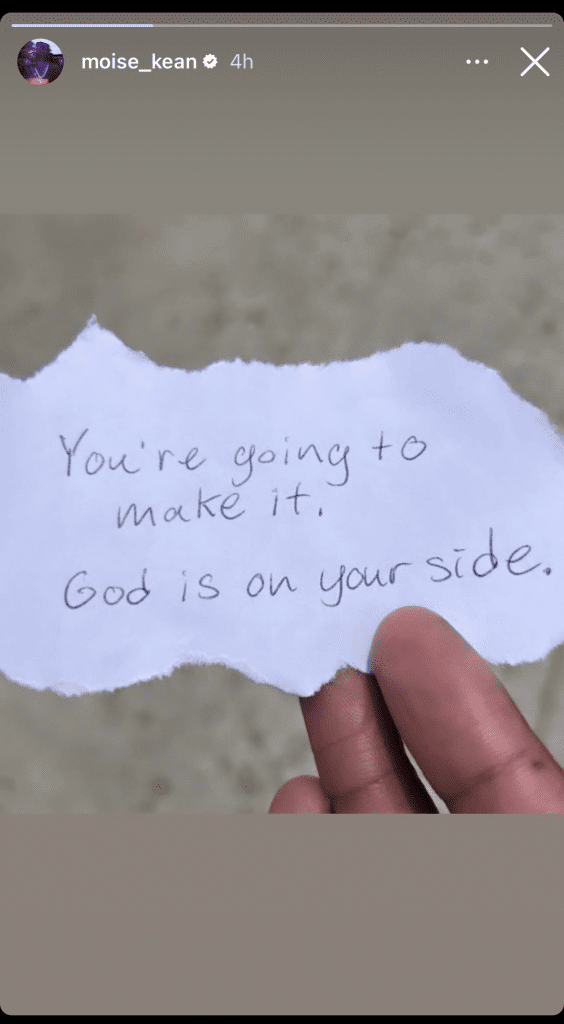 moise_kean 4h
You're going to
make it.
God is on your side.